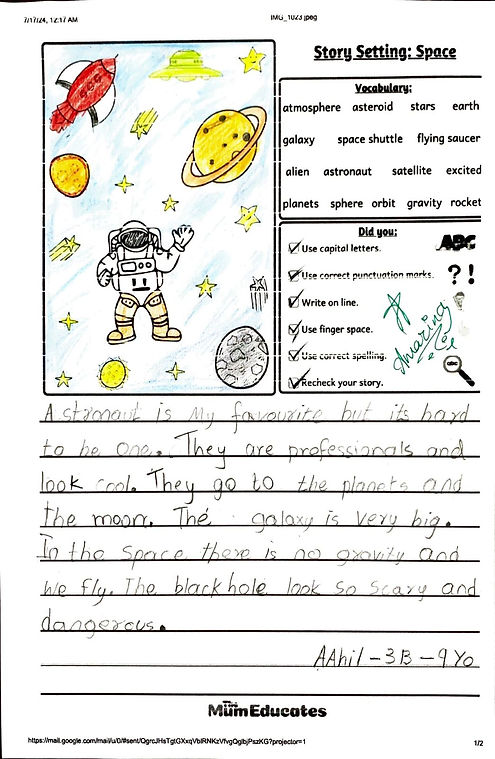 7/17/24, 12:17 AM
IMG_1023.jpeg
Story Setting: Space
Vocabulary:
atmosphere asteroid stars earth
galaxy space shuttle flying saucer
alien astronaut satellite excited
planets sphere orbit gravity rocket
Did you:
Use capital letters. ABC
Use correct punctuation marks. ? !
Write on line.
Use finger space.
Use correct spelling.
Recheck your story.
Amazing
Astronaut is My favourite but its hard
to be one. They are professionals and
look cool. They go to the planets and
the moon. The galaxy is very big.
In the space there is no gravity and
we fly. The black hole look so scary and
dangerous.
AAhil - 3B - 9 Yo
MumEducates
https://mail.google.com/mail/u/0/#sent/QgrcJHsTgtGXxqVblRNKzVfvgQglbjPszKG?projector=1
1/2